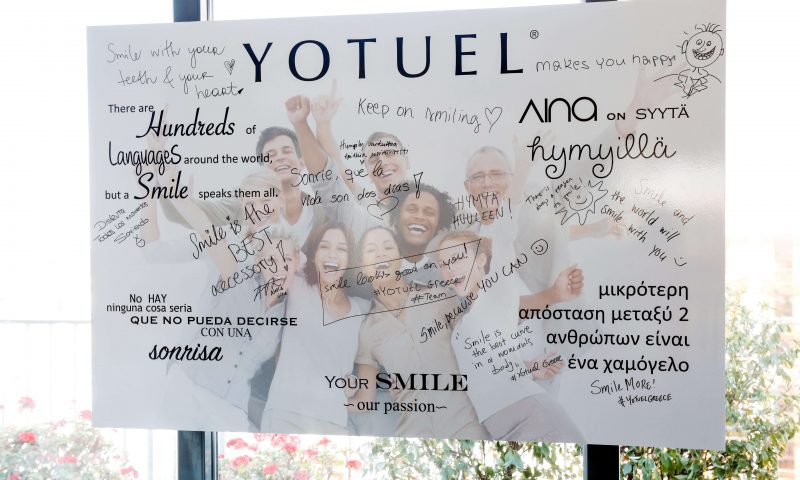 Smile with your
teeth & your
heart
YOTUEL®
makes you happy
There are
Hundreds of
Languages around the world,
but a Smile speaks them all.
Keep on smiling
AINA ON SYYTÄ
hymyillä
Sonrie, que la
vida son dos días!
HYMYÄ
HUULEEN!
There's
a reason
Smile and
the world will
smile with you
Disfruta
Todos los momentos
Sonriendo
Smile is the
BEST
accessory!
Smile looks good on you!
#YOTUEL Greece
#Team
Smile, because YOU CAN
No HAY
ninguna cosa seria
QUE NO PUEDA DECIRSE
CON UNA
sonrisa
"Smile is
the best curve
in a woman's
body"
#Yotuel Greece
μικρότερη
απόσταση μεταξύ 2
ανθρώπων είναι
ένα χαμόγελο
YOUR SMILE
~our passion~
Smile MORE!
#YOTUELGREECE